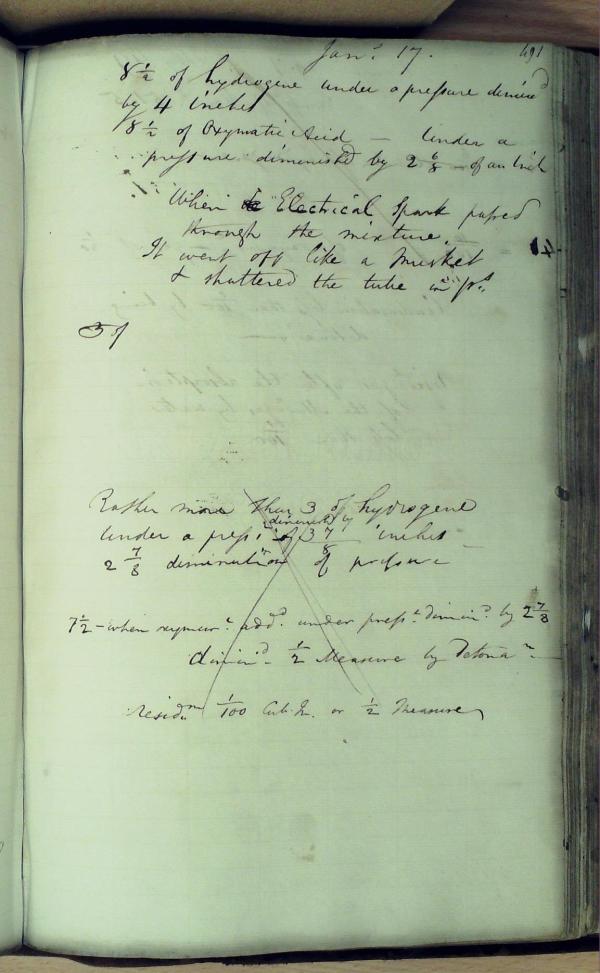 Jany. 17. 691
8 1/2 of hydrogene under a pressure dimind
by 4 inches
8 1/2 of Oxymatic Acid — Under a
pressure diminished by 2 6/8 of an Inch
When Electrical Spark passed
through the mixture.
It went off like a Musket
& shattered the tube in ps.
3 of
Rather more than 3 of hydrogene
diminishd by
Under a press: of 3 7/8 inches
2 7/8 diminution of pressure
7 1/2 - when oxymur. addd. under press. dimind. by 2 7/8
dimind. 1/2 Measure by Detonan.
residum 1/100 Cub. In. or 1/2 Measure